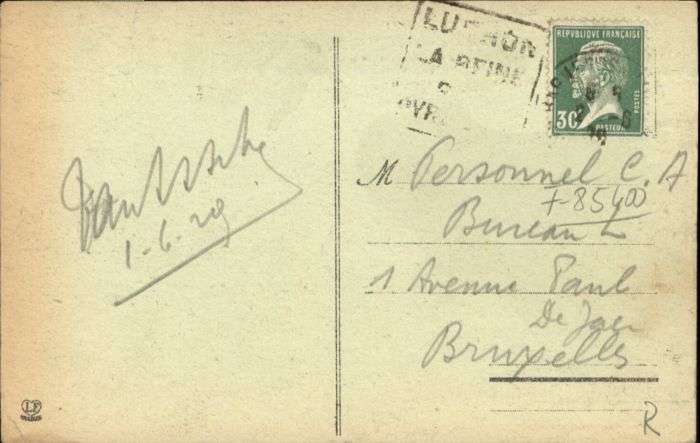 LUCHON
LA REINE
REPUBLIQUE FRANÇAISE
30c
POSTES
PASTEUR
1-6.29
M Personnel C. A
F-85400
Bureau
1 Avenue Paul
De Jaer
Bruxelles
R